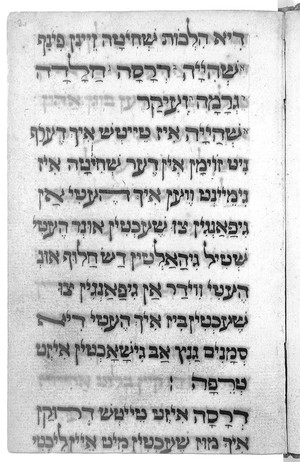 דיא הלכות שחיטה זיינן פינף
שהייה דרסה חלדה
גרמה ועיקר
שהייה איז טייטש איך דערף
ניט זוימן אין דער שחיטה איז
גימיינט ווען איך העטי אן
גיפאנגין צו שעכטין אונד העטי
שטיל גיהאלטין דש חלוף אונ
העטי ווידר אן גיפאנגין צו
שעכטין ביז איך העטי דיא
סמנים גנץ אב גישאכטין איזט
טרפה
דרסה איזט טייטש דרוקן
איך מוז שעכטין מיט איין ליכטי